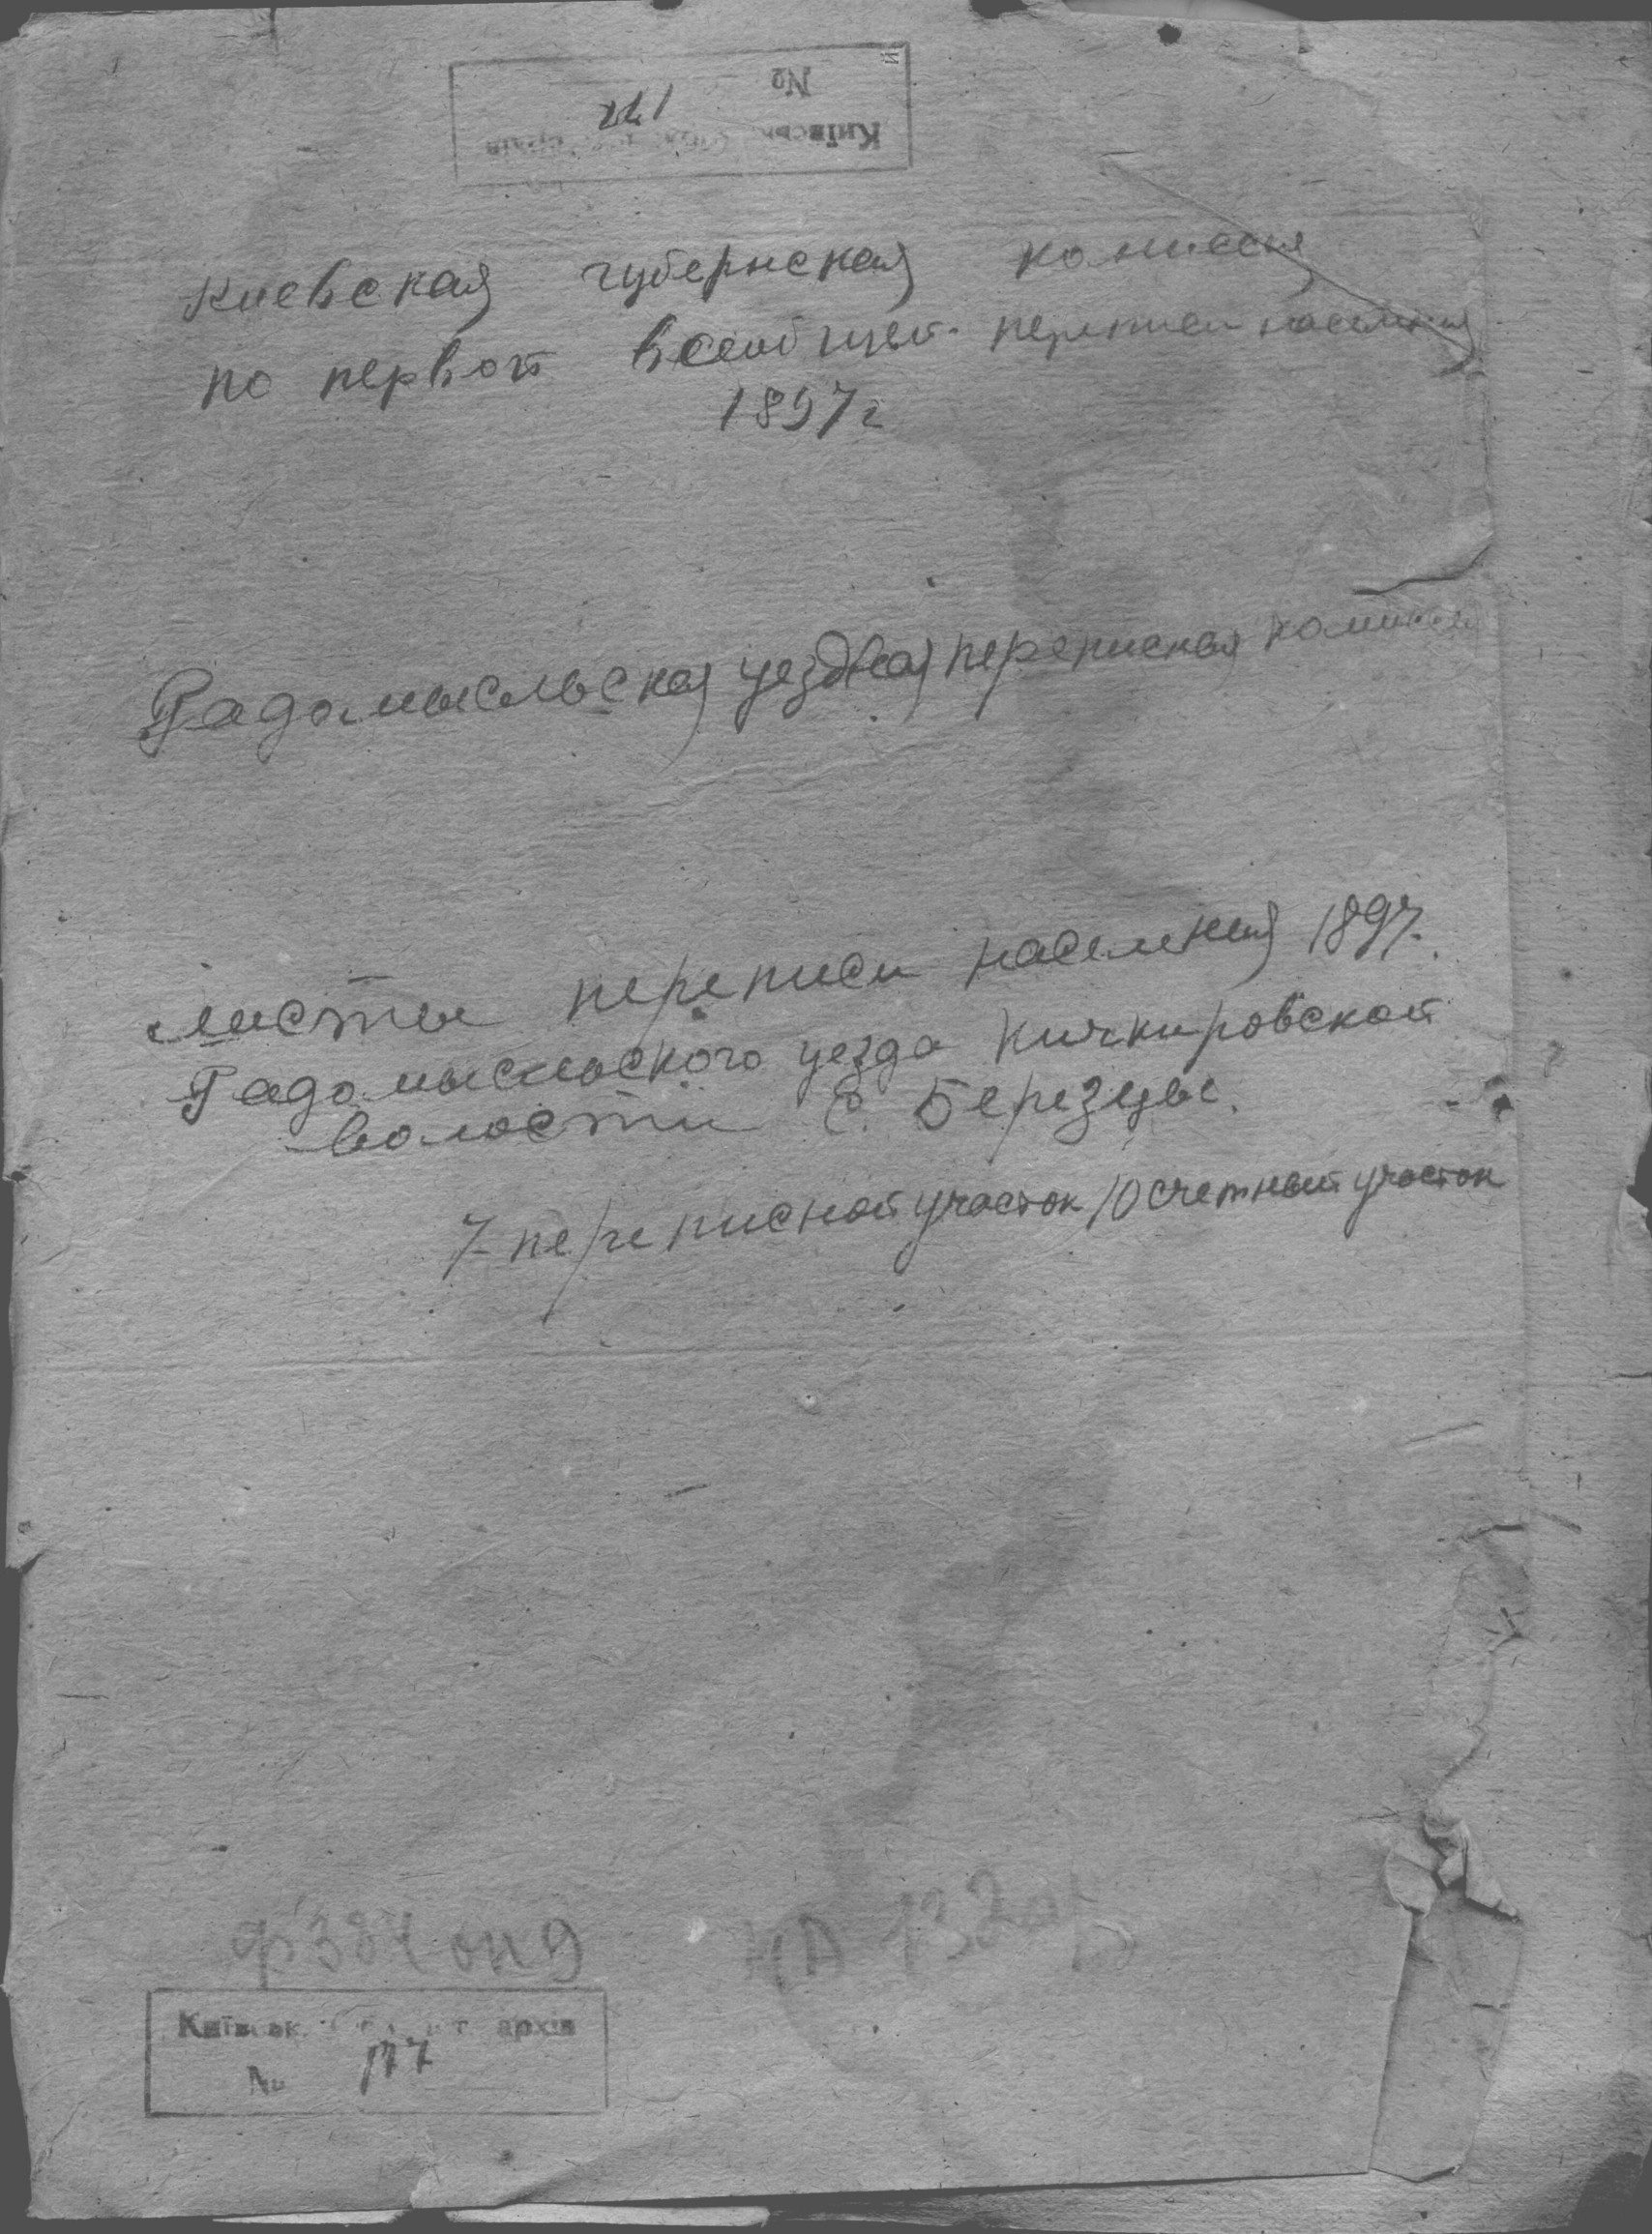 №
177
Київськ. архів
Киевская губернская комиссия
по первой всеобщей переписи населения
1897г
Радомысльская уездная переписная комиссия
листы переписи населения 1897.
Радомысльского уезда Кичкировской
волости с. Березцы.
7 переписной участок 10 счетный участок
ф 384 оп 9
Київськ. іст. архів
№ 177